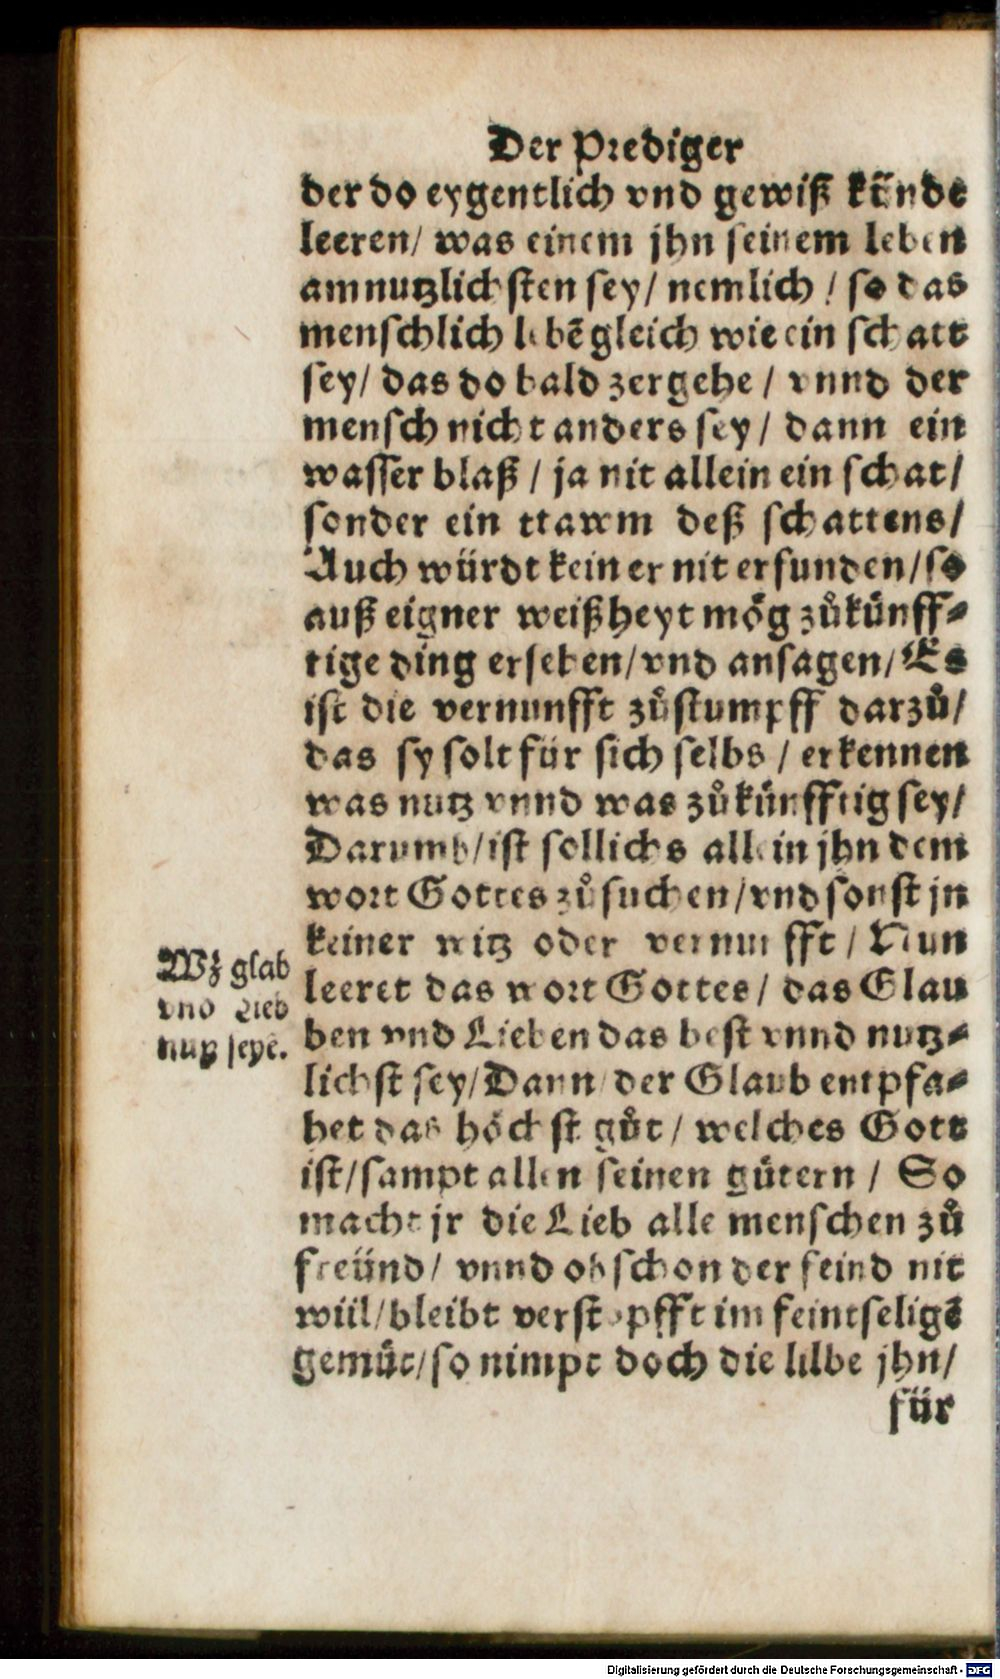 Der Prediger
der do eygentlich vnd gewiß künde
leeren/ was einem jhn seinem leben
am nutzlichsten sey/ nemlich / so das
menschlich lebē gleich wie ein schatt
sey/ das do bald zergehe / vnnd der
mensch nicht anders sey/ dann ein
wasser blaß / ja nit allein ein schat/
sonder ein ttawm deß schattens/
Auch würdt keiner nit erfunden/so
auß eigner weißheyt mög zůkünff⸗
tige ding ersehen/vnd ansagen/Es
ist die vernunfft zůstumpff darzů/
das sy solt für sich selbs / erkennen
was nutz vnnd was zůkünfftig sey/
Darumb/ist sollichs allein jhn dem
wort Gottes zůsuchen/vnd sonst jn
keiner witz oder vernunfft / Nun
leeret das wort Gottes/ das Glau
ben vnd Lieben das best vnnd nutz⸗
lichst sey/Dann der Glaub entpfa⸗
het das höchst gůt/ welches Gott
ist/sampt allen seinen gütern / So
macht jr die Lieb alle menschen zů
freünd/ vnnd ob schon der feind nit
wiil/bleibt verstopfft im feintseligē
gemüt/so nimpt doch die lilbe jhn/
für
Wz glab
vnd Lieb
nutz seyē.
Digitalisierung gefördert durch die Deutsche Forschungsgemeinschaft - DFG